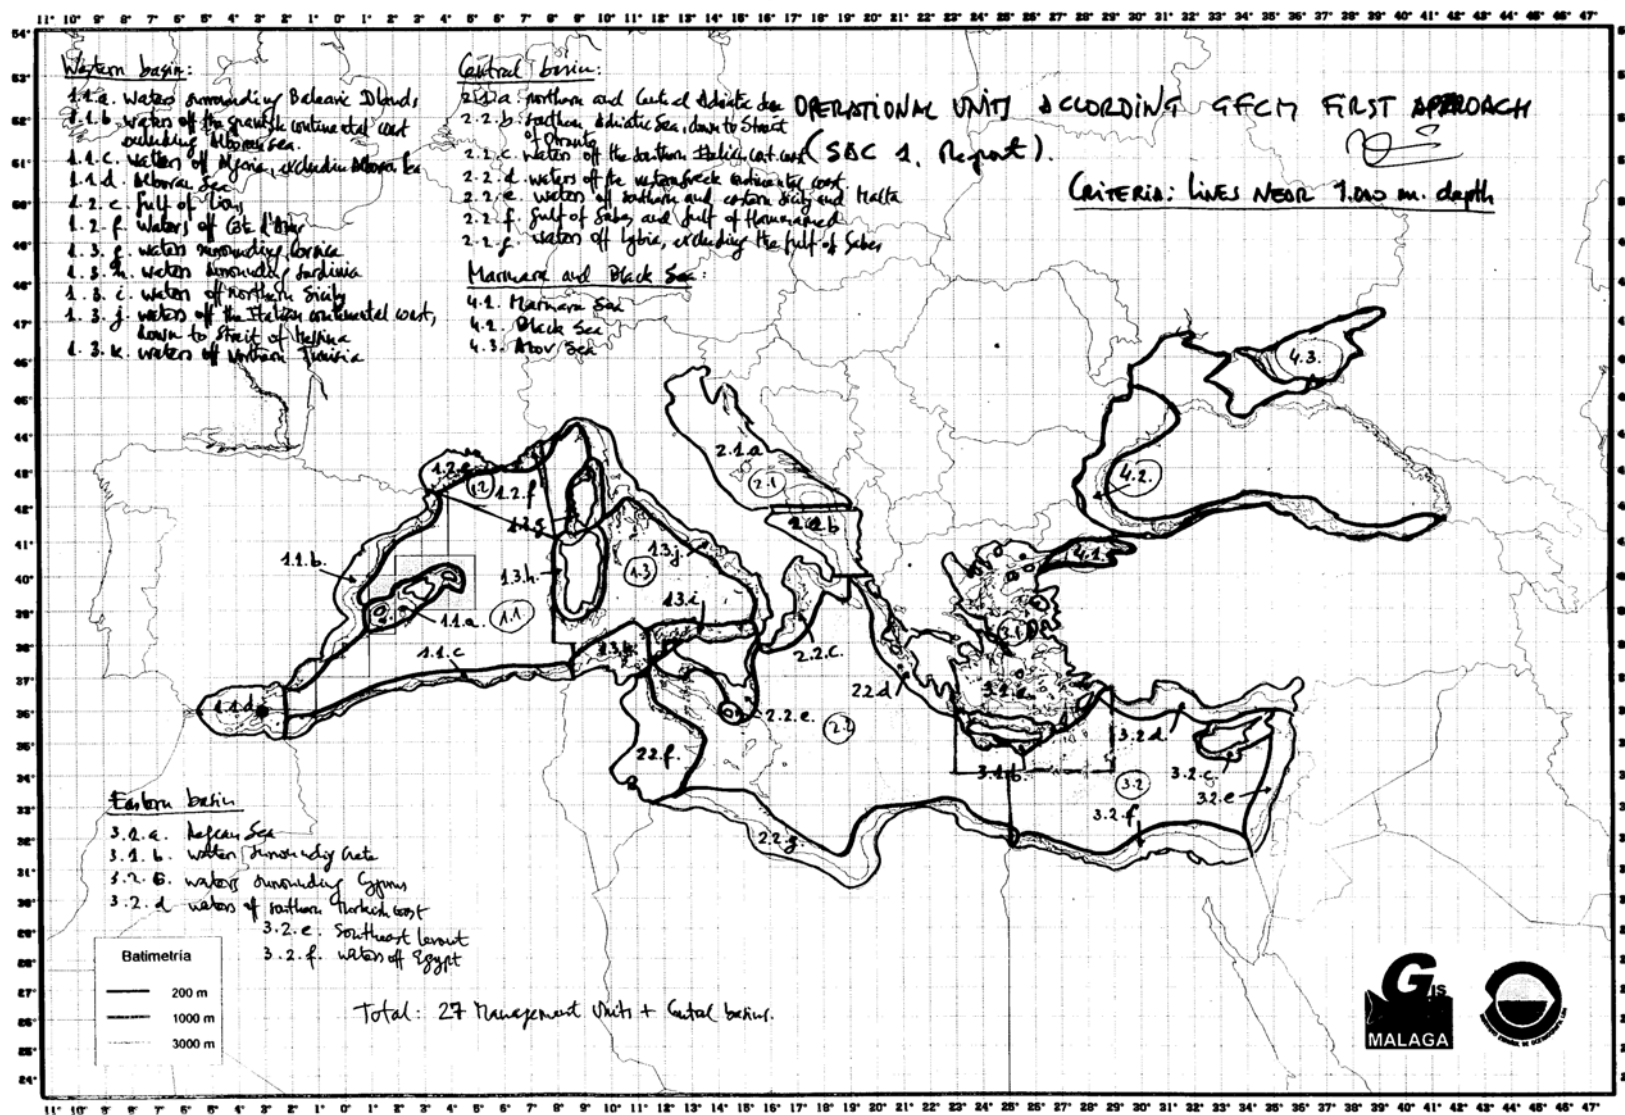 11° 10° 9° 8° 7° 6° 5° 4° 3° 2° 1° 0° 1° 2° 3° 4° 5° 6° 7° 8° 9° 10° 11° 12° 13° 14° 15° 16° 17° 18° 19° 20° 21° 22° 23° 24° 25° 26° 27° 28° 29° 30° 31° 32° 33° 34° 35° 36° 37° 38° 39° 40° 41° 42° 43° 44° 45° 46° 47°
Western basin:
1.1.a. waters surrounding Balearic Islands
1.1.b. waters off the spanish continental coast
excluding Alboran Sea.
1.1.c. waters off Algeria, excluding Alboran Sea
1.1.d. Alboran Sea
1.2.e. Gulf of Lions
1.2.f. Waters of Côte d'Azur
1.3.g. waters surrounding Corsica
1.3.h. waters surrounding Sardinia
1.3.i. waters off northern Sicily
1.3.j. waters off the Italian continental coast,
down to Strait of Messina
1.3.k. waters off Northern Tunisia
Central basin:
2.1.a northern and Central Adriatic Sea
2.2.b. Southern Adriatic Sea, down to Strait
of Otranto
2.2.c. waters off the southern Italian coast
2.2.d. waters off the western Greek continental coast.
2.2.e. waters off southern and eastern Sicily and Malta
2.2.f. Gulf of Gabes and Gulf of Hammamed
2.2.g. waters off Lybia, excluding the Gulf of Gabes
Marmara and Black Sea:
4.1. Marmara Sea
4.2. Black Sea
4.3. Azov Sea
OPERATIONAL UNITS ACCORDING GFCM FIRST APPROACH
(SAC 1, Report).
CRITERIA: LINES NEAR 1.000 m. depth
4.3.
4.2.
4.1.
2.1.a
2.1
2.2.b
1.2.e
1.2
1.2.f
1.3.g
1.3.j.
1.3.h.
1.3
1.3.i
1.3.k
1.1.b.
1.1.a.
1.1
1.1.c
1.1.d
2.2.c.
2.2.d
2.2.e.
2.2
2.2.f.
2.2.g.
3.1
3.1.a
3.1.b.
3.2.d
3.2.c.
3.2
3.2.e
3.2.f
Eastern basin
3.1.a. Aegean Sea
3.1.b. waters surrounding Crete
3.2.c. waters surrounding Cyprus
3.2.d waters of southern Turkish coast
3.2.e. Southeast Levant
3.2.f. waters off Egypt
Batimetría
200 m
1000 m
3000 m
Total: 27 Management Units + Central basins.
GIS
MALAGA
11° 10° 9° 8° 7° 6° 5° 4° 3° 2° 1° 0° 1° 2° 3° 4° 5° 6° 7° 8° 9° 10° 11° 12° 13° 14° 15° 16° 17° 18° 19° 20° 21° 22° 23° 24° 25° 26° 27° 28° 29° 30° 31° 32° 33° 34° 35° 36° 37° 38° 39° 40° 41° 42° 43° 44° 45° 46° 47°